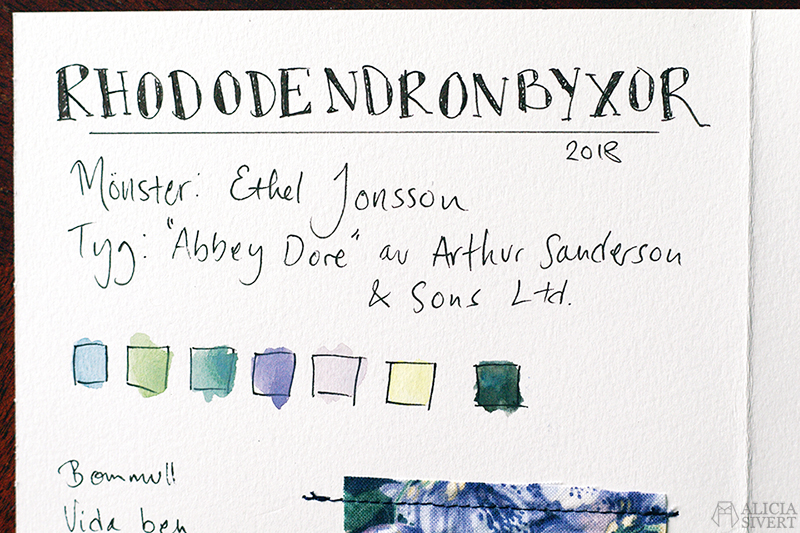 RHODODENDRONBYXOR
2018
Mönster: Ethel Jonsson
Tyg: "Abbey Dore" av Arthur Sanderson
& Sons Ltd.
Bommull
Vida ben
ALICIA
SIVERT